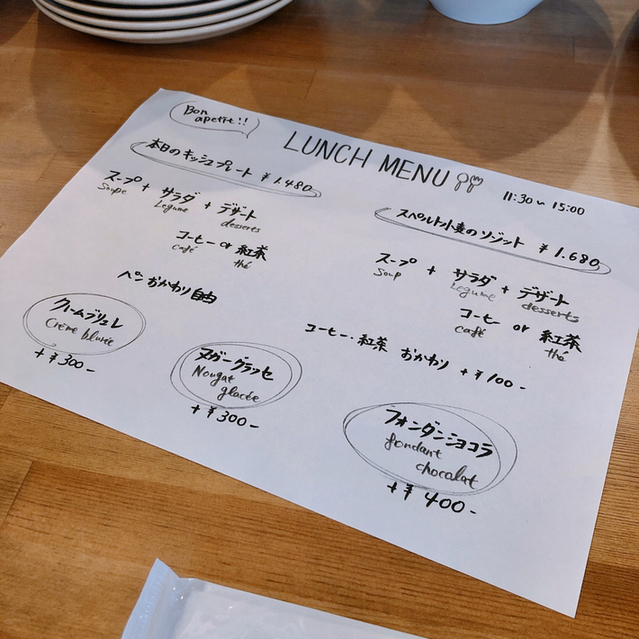 Bon
apetit!!
LUNCH MENU
11:30〜15:00
本日のキッシュプレート ¥1.480
スープ + サラダ + デザート
Soupe Legume desserts
コーヒー or 紅茶
café thé
パンおかわり自由
スペルト小麦のリゾット ¥1.680
スープ + サラダ + デザート
Soup Legume desserts
コーヒー or 紅茶
café thé
コーヒー・紅茶 おかわり +¥100-
クレームブリュレ
Créme bluree
+¥300-
ヌガーグラッセ
Nougat
glacée
+¥300-
フォンダンショコラ
fondant
chocolat
+¥400-